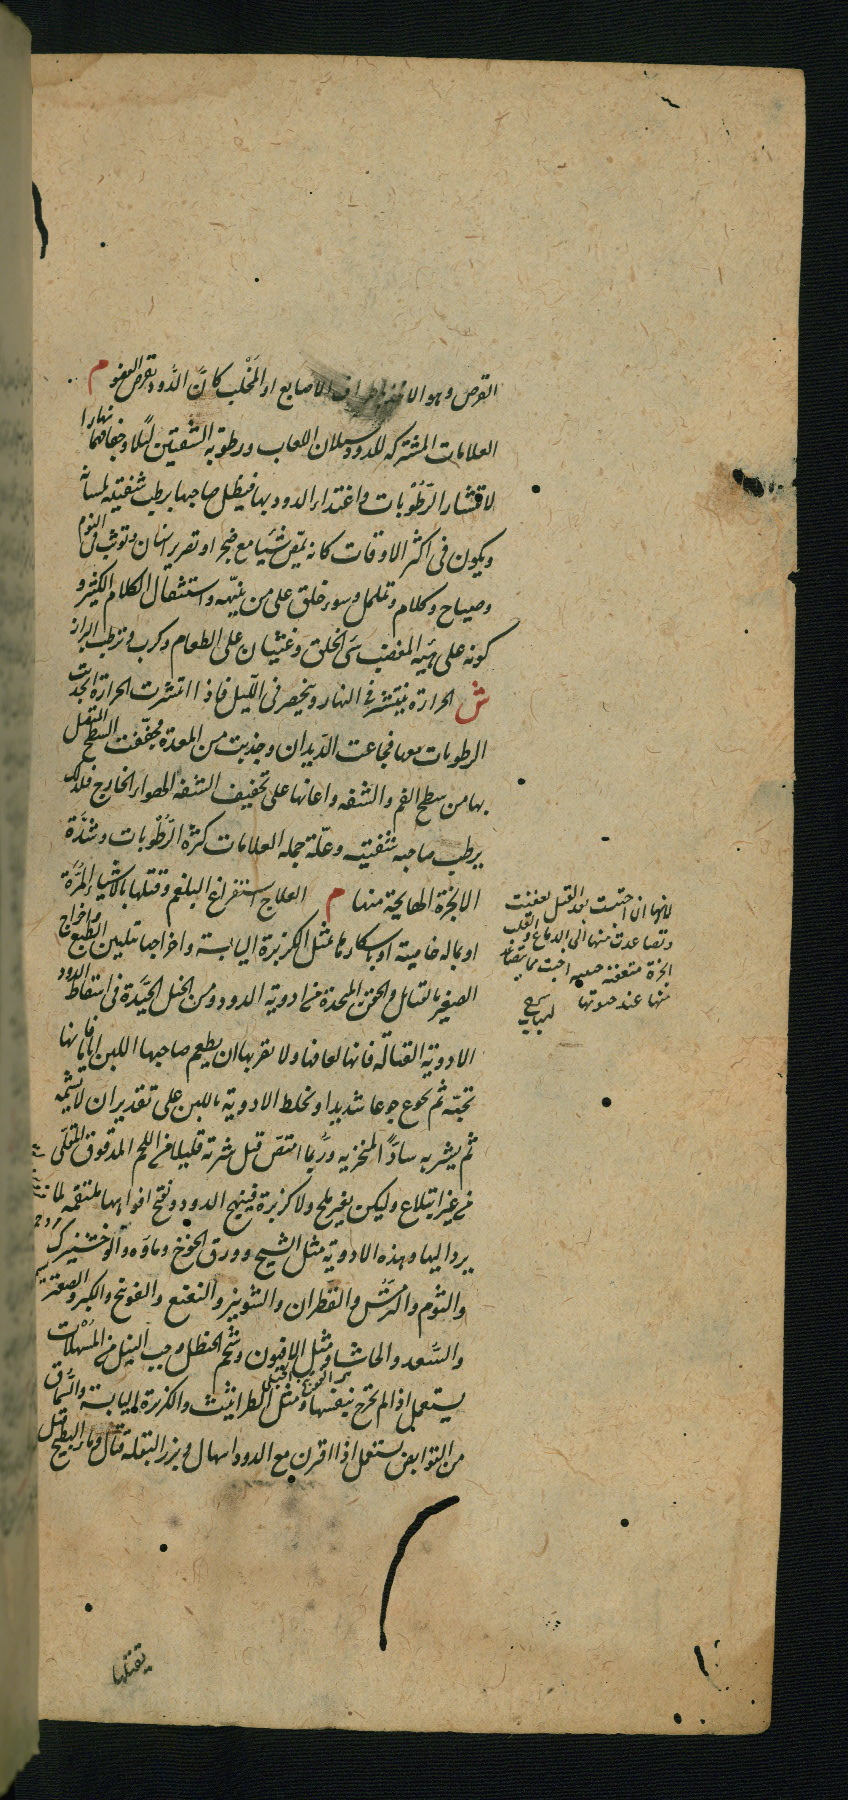 القرص وهو الاخذ باطراف الاصابع او المخلب كانّ الدود تقرص العضو م
العلامات المشتركه للدود سيلان اللعاب ورطوبه الشفتين ليلا وجفافهما نهارا
لانتشار الرطوبات واغتذاء الدود بها فيظل صاحبها يرطب شفتيه بلسانه
ويكون فى اكثر الاوقات كانه يمضغ شيا مع ضجر او تصرير اسنان وتوثب فى النوم
وصياح وكلام وتململ وسوء خلق على من ينبهه واستثقال الكلام الكثير و
كونه على هيه المغضب سىّ الخلق وغثيان على الطعام وكرب وترطب البراز
ش الحرارة ينتشر فى النهار وينحصر فى الليل فاذا انتشرت الحرارة انجذبت
الرطوبات معها فجاعت الديدان وجذبت من المعدة فجففت السطح المتصل
بها من سطح الفم والشفه واعانها على تجفيف الشفه الهواء الخارج فلذلك
يرطب صاحبه شفتيه وعلّة جمله العلامات كثرة الرطوبات وشدّة
الابخرة الهايجة منها م العلاج استفراغ البلغم وقتلها بالاشياء المرّة
او بماله خاصية او باسكارها بمثل الكزبرة اليابسة واخراجها بتليين الطبع واخراج
الصغير بالفتايل والحقن المتخذة من ادوية الدود ومن الحيل الجيّدة فى اسقاط الدود
الادوية القتالة فانها تعافها ولا تقربها ان يطعم صاحبها اللبن اياما فانها
تحبّه ثم يجوع جوعا شديدا ويخلط الادوية باللبن على تقدير ان لا تشمّه
ثم يشربه سادّا لمنخريه وربما امتصّ قبل شربه قليلا من اللحم المدقوق المقلى
من غير ابتلاع وليكن بغير ملح ولا كزبرة فيهيج الدود وتفتح افواهها ملتقمه لما
يرد اليها وهذه الادوية مثل الشيح وورق الخوخ وماؤه والوخشيزك
والثوم والترمس والقطران والشونيز والنعنع والفوتنج والكبر والصعتر
والسّعد والحاشا ومثل الافيون وشحم الحنظل وحب النيل من المسهلات
يستعمل اذا لم تخرج بنفسها ومثل الطراثيث والكزبرة اليابسة والسّماق
من القوابض يستعمل اذا اقترن مع الدود اسهال وبزر البقلة قتال وماء البطيخ
لانها ان احتبست بعد القتل تعفنت
وتصاعدت منها الى الدماغ والقلب
ابخرة متعفنة
منها عند موتها
يقتلها